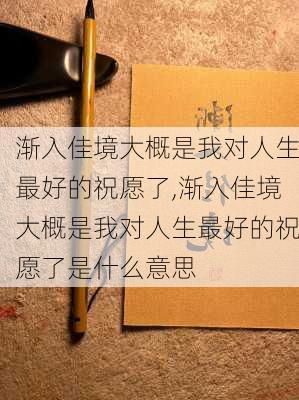 渐入佳境大概是我对人生
最好的祝愿了,渐入佳境
大概是我对人生最好的祝
愿了是什么意思